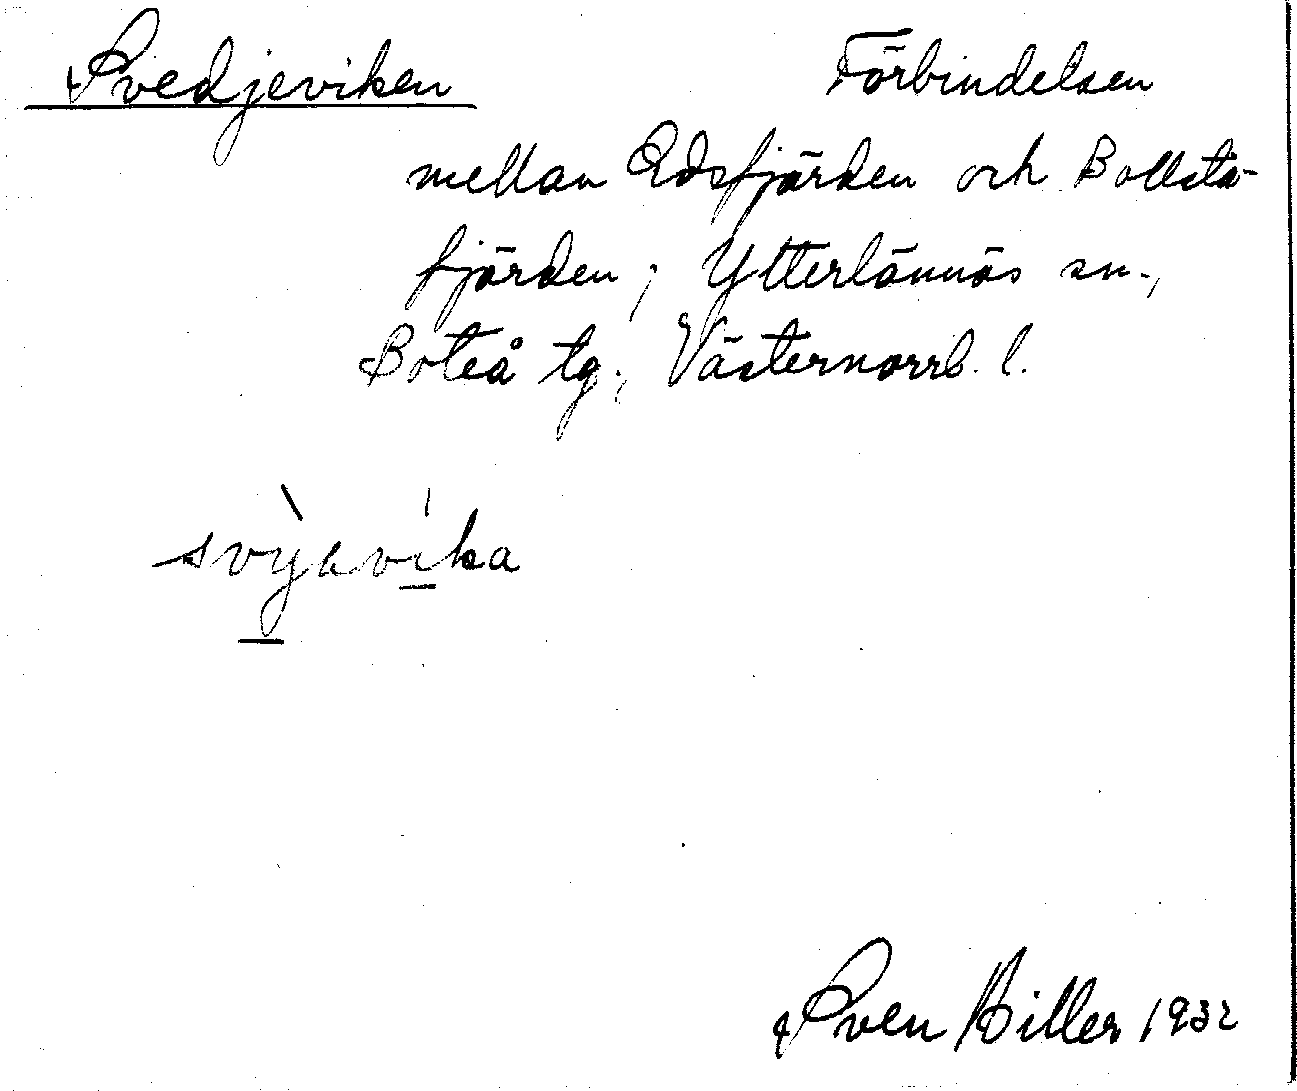 Svedjeviken Förbindelsen
mellan Edsfjärden och Bollsta-
fjärden; Ytterlännäs sn.,
Boteå tg., Västernorrl. l.
svỳavíka
Sven Hiller 1932